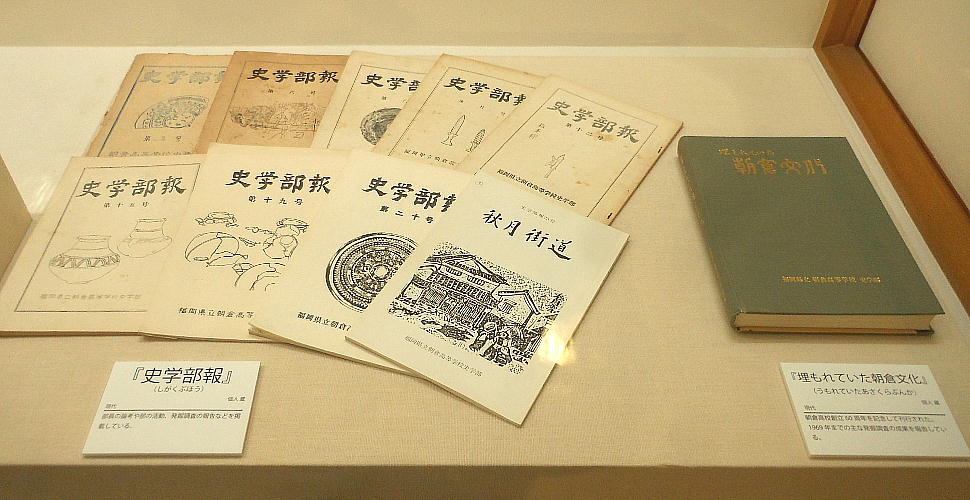 史学部報
第三号
史学部報
第六号
史学
史学部報
史学部報
第十二号
福岡県立朝倉高等学校史学部
史学部報
第十五号
福岡県立朝倉高等学校史学部
史学部報
第十九号
福岡県立朝倉高等
史学部報
第二十号
福岡県立朝倉
秋月街道
福岡県立朝倉高等学校史学部
埋もれていた
朝倉文化
福岡県立 朝倉高等学校 史学部
『史学部報』
(しがくぶほう)
個人蔵
現代
部員の論考や部の活動、発掘調査の報告などを掲
載している。
『埋もれていた朝倉文化』
(うもれていたあさくらぶんか)
個人蔵
現代
朝倉高校創立60周年を記念して刊行された。
1969年までの主な発掘調査の成果を報告してい
る。